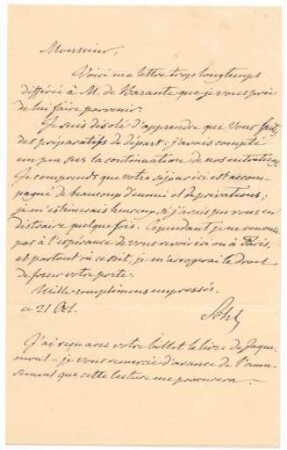 Monsieur,
Voici ma lettre trop longtemps
différée à M. de Barante que je vous prie
de lui faire parvenir.
Je suis désolé d'apprendre que vous faites
des préparatifs de départ : j'avais compté
un peu sur la continuation de nos entretiens.
Je comprends que votre séjour ici est accom-
pagné de beaucoup d'ennui et de privations ;
je m'estimerais heureux, si j'avais pu vous en
distraire quelquefois. Cependant je ne renonce
pas à l'espérance de vous revoir ici ou à Paris,
et partout où ce soit, je m'arrogerai le droit
de forcer votre porte.
Mille complimens empressés.
ce 21 Oct.
Schl
J'ai reçu avec votre billet le livre de Jacque-
mont – je vous remercie d'avance de l'amu-
sement que cette lecture me procurera –